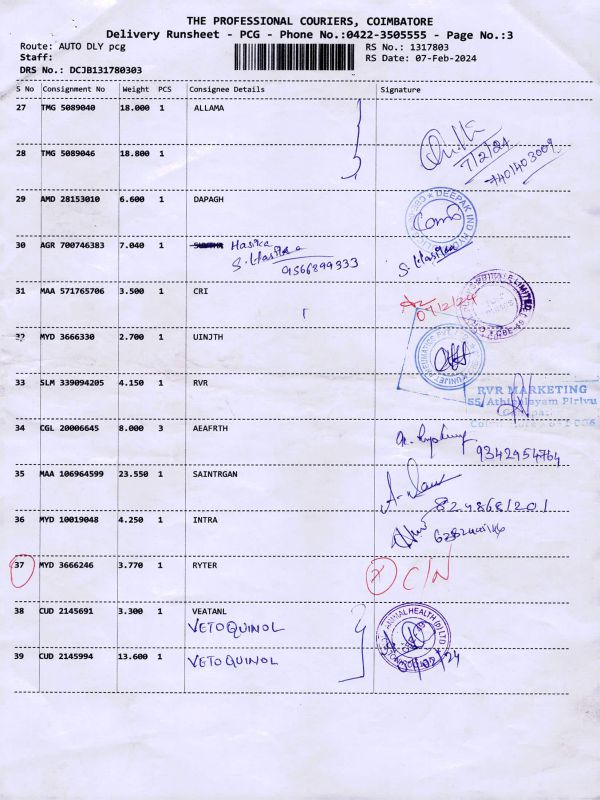 THE PROFESSIONAL COURIERS, COIMBATORE
Delivery Runsheet - PCG - Phone No.:0422-3505555 - Page No.:3
Route: AUTO DLY pcg RS No.: 1317803
Staff: RS Date: 07-Feb-2024
DRS No.: DCJB131780303
S No Consignment No Weight PCS Consignee Details Signature
27 TMG 5089040 18.000 1 ALLAMA
28 TMG 5089046 18.800 1
7/2/24
29 AMD 28153010 6.600 1 DAPAGH
DEEPAK IND
30 AGR 700746383 7.040 1 Hasika
S. Hasika 9566899333 S. Hasika
31 MAA 571765706 3.500 1 CRI
07/2/24
PRIVATE LIMITED
32 MYD 3666330 2.700 1 UINJTH
UNIJET PNEUMATICS PVT
33 SLM 339094205 4.150 1 RVR
RVR MARKETING
55, Athipalayam Pirivu
34 CGL 20006645 8.000 3 AEAFRTH
9342954764
35 MAA 106964599 23.550 1 SAINTRGAN
36 MYD 10019048 4.250 1 INTRA
37 MYD 3666246 3.770 1 RYTER C/N
38 CUD 2145691 3.300 1 VEATANL
VETOQUINOL
ANIMAL HEALTH (I) LTD
39 CUD 2145994 13.600 1 VETOQUINOL
07/02/24